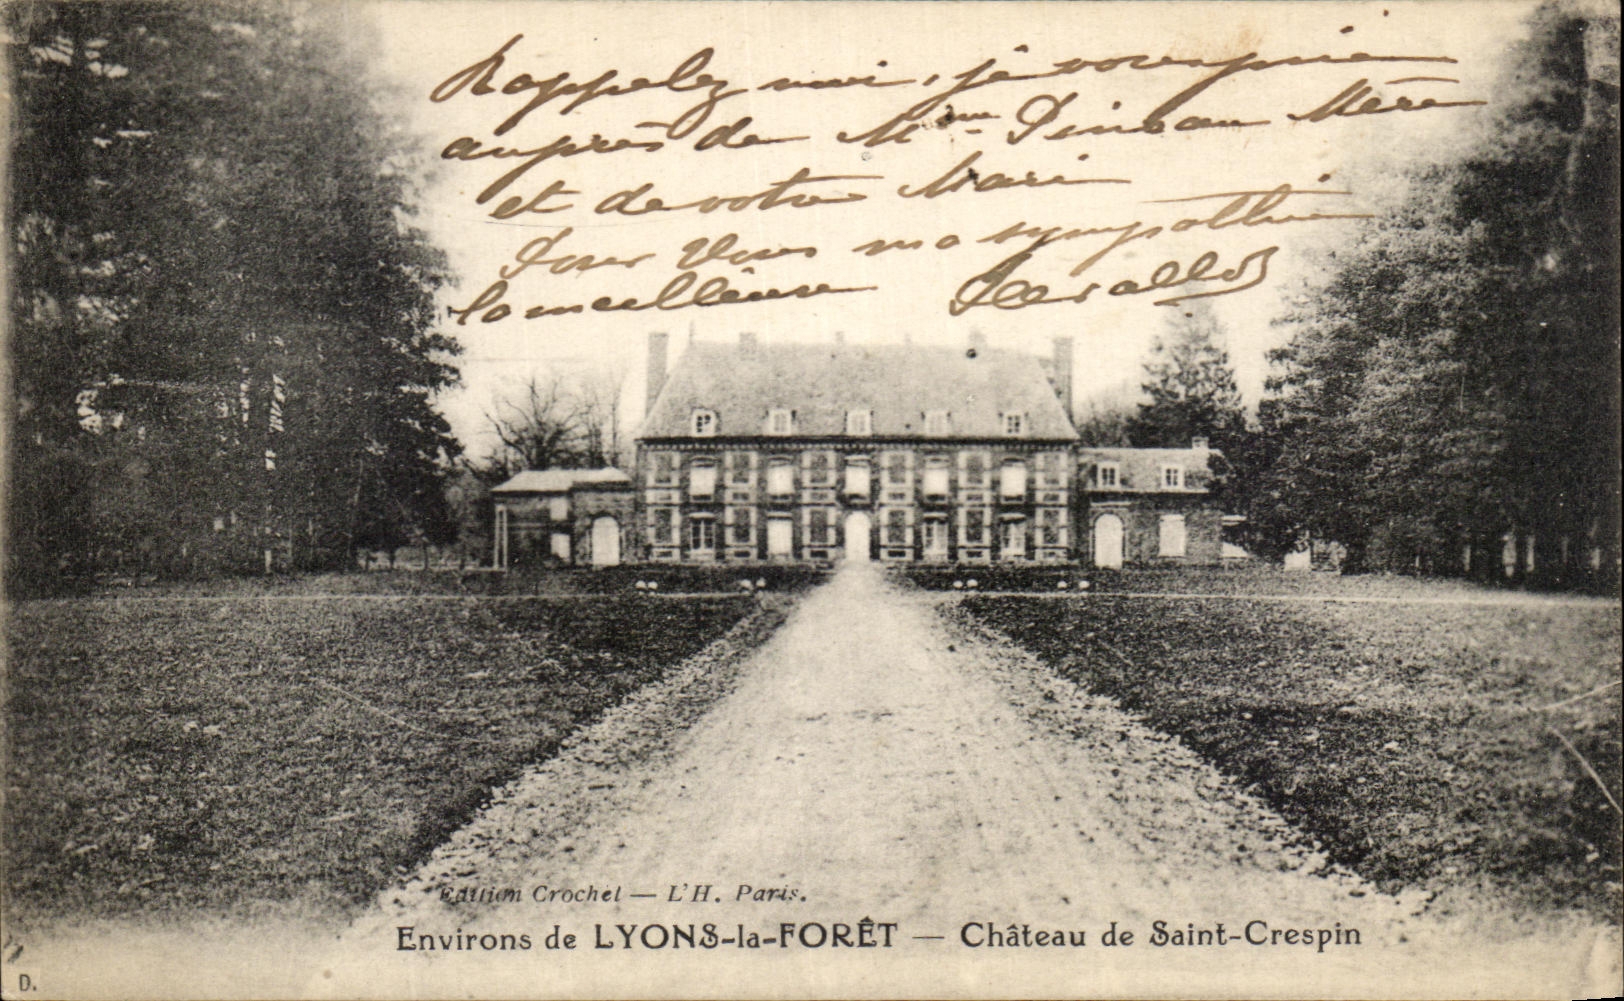 Rappelez moi, je vous prie
auprès de Mme Pineau Mère
et de votre Mari
Pour Vous ma sympathie
la meilleure
Edition Crochet — L'H. Paris.
Environs de LYONS-la-FORÊT — Château de Saint-Crespin
D.